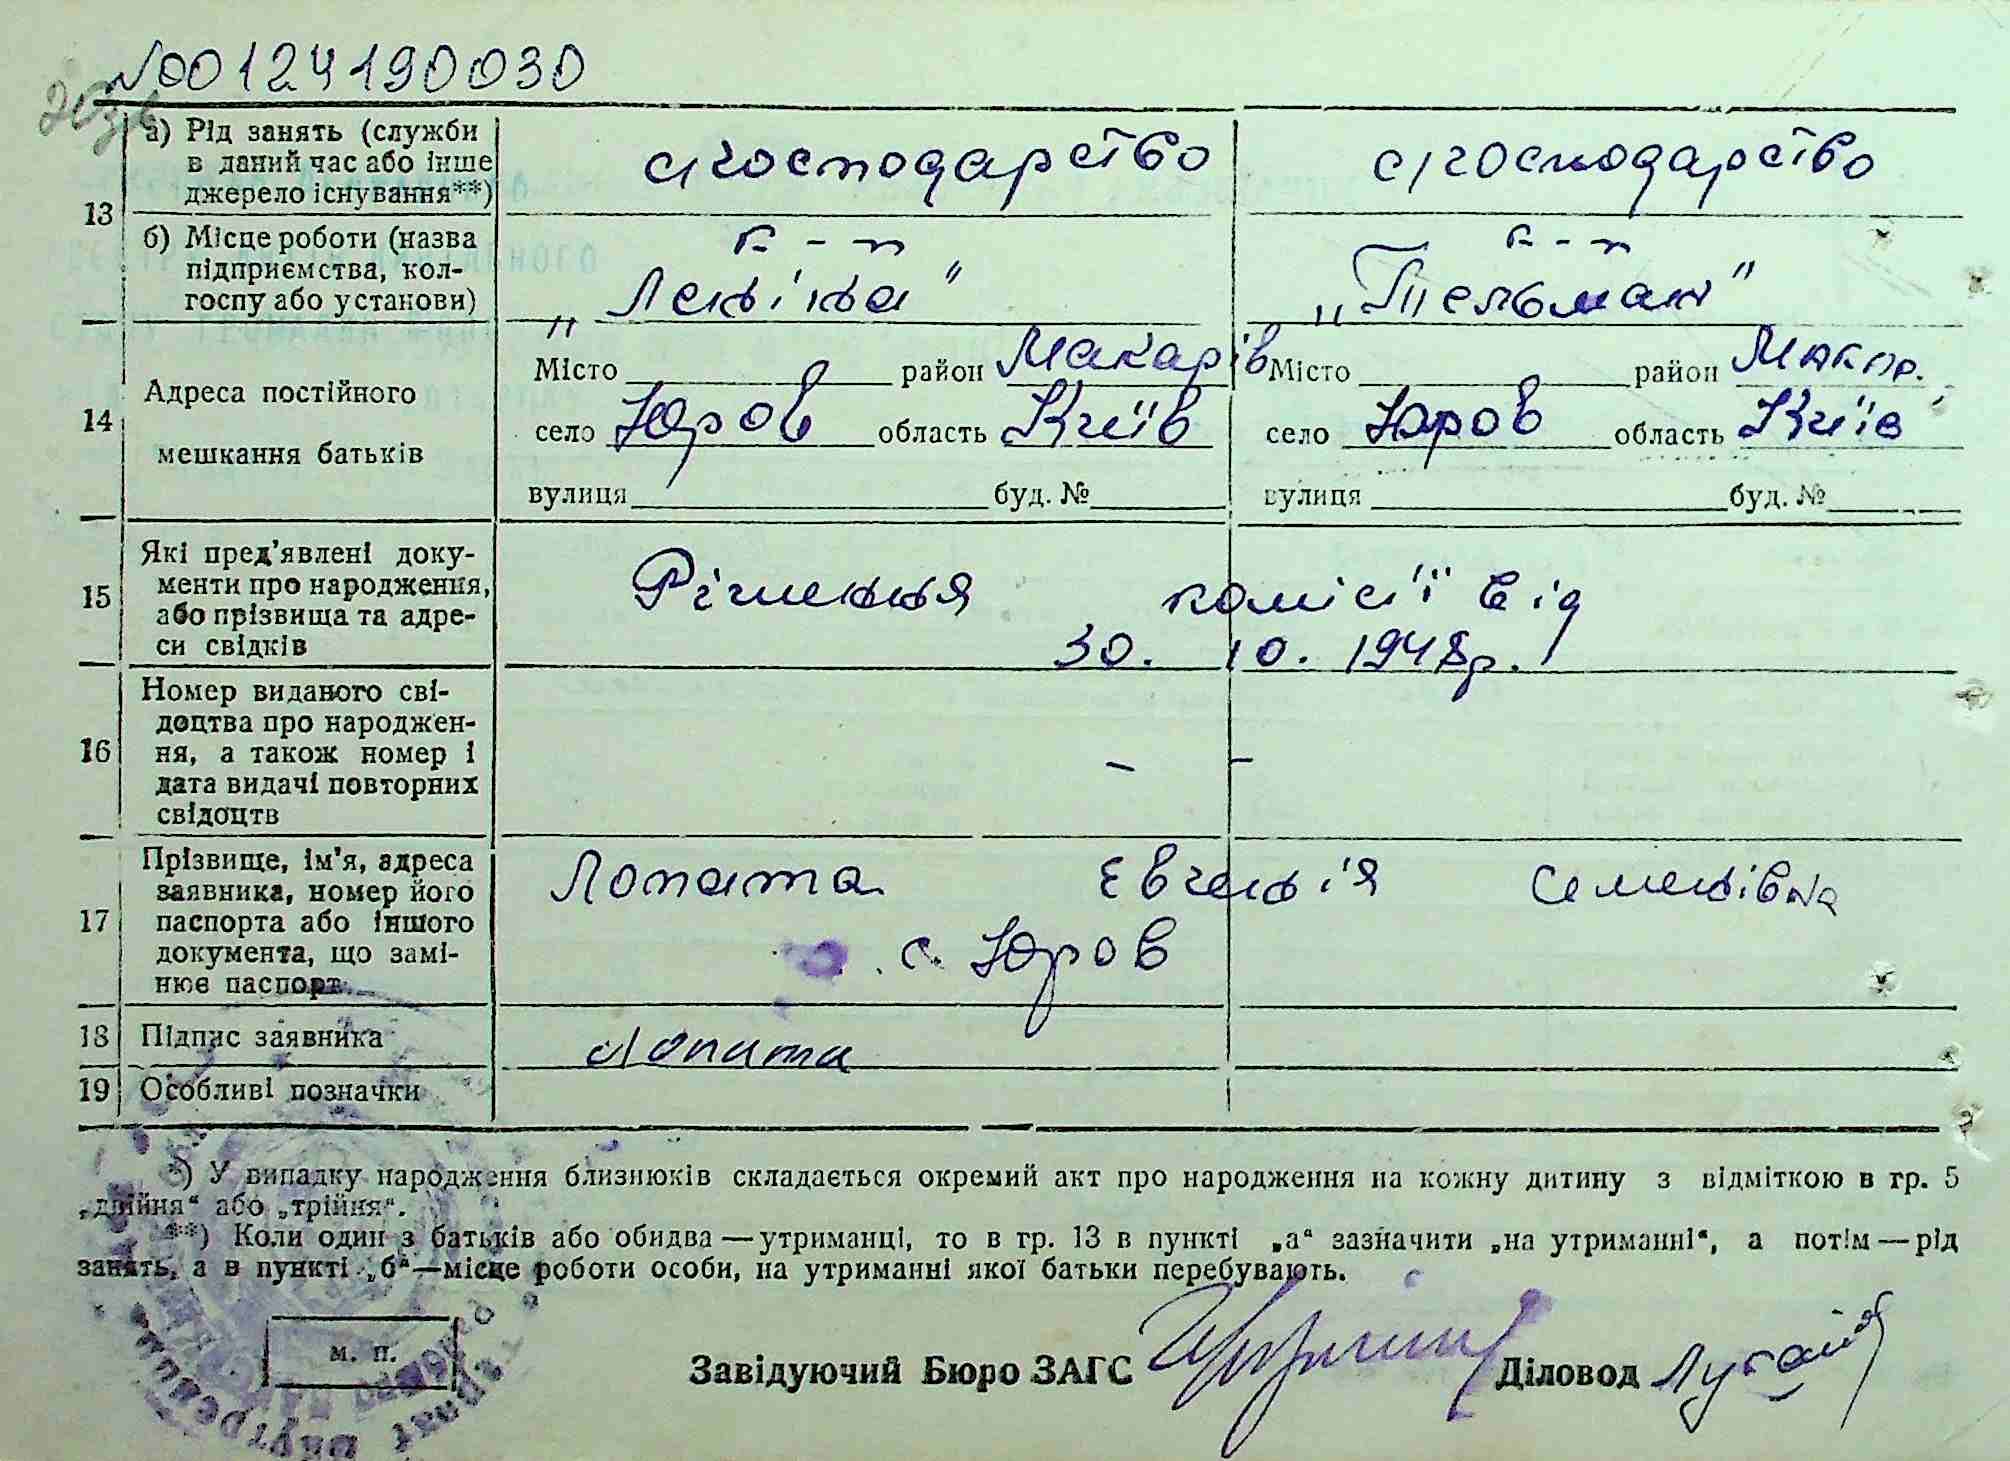 №00124190030
13
а) Рід занять (служби
в даний час або інше
джерело існування**)
с/господарство
с/господарство
б) Місце роботи (назва
підприємства, кол-
госпу або установи)
к-п
„Леніна"
к-п
„Тельман"
14
Адреса постійного
мешкання батьків
Місто район Макарів
село Юров область Київ
вулиця буд. №
Місто район Макар.
село Юров область Київ
вулиця буд. №
15
Які пред'явлені доку-
менти про народження,
або прізвища та адре-
си свідків
Рішення комісії від
30. 10. 1948р.
16
Номер виданого сві-
доцтва про народжен-
ня, а також номер і
дата видачі повторних
свідоцтв
– –
17
Прізвище, ім'я, адреса
заявника, номер його
паспорта або іншого
документа, що замі-
нює паспорт
Лопата Євгенія Семенівна
с. Юров
18
Підпис заявника
Лопата
19
Особливі позначки
*) У випадку народження близнюків складається окремий акт про народження на кожну дитину з відміткою в гр. 5
„двійня“ або „трійня“.
**) Коли один з батьків або обидва — утриманці, то в гр. 13 в пункті „а“ зазначити „на утриманні“, а потім — рід
занять, а в пункті „б“—місце роботи особи, на утриманні якої батьки перебувають.
м. п.
Завідуючий Бюро ЗАГС
Діловод